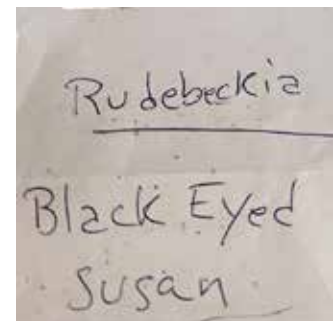 Rudebeckia
Black Eyed
Susan